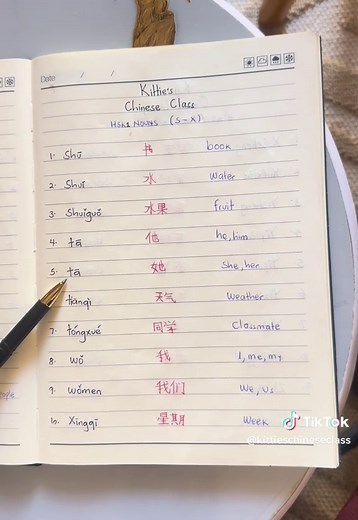 Date / /
Kittie's
Chinese Class
HSK1 Nouns (S-X)
1. Shū 书 book
2. Shuǐ 水 Water
3. Shuǐguǒ 水果 fruit
4. tā 他 he, him
5. tā 她 She, her
tiānqì 天气 Weather
7. tóngxué 同学 Classmate
8. wǒ 我 I, me, my
9. wǒmen 我们 We, Us
10. Xīngqī 星期 Week
TikTok
@kittieschineseclass